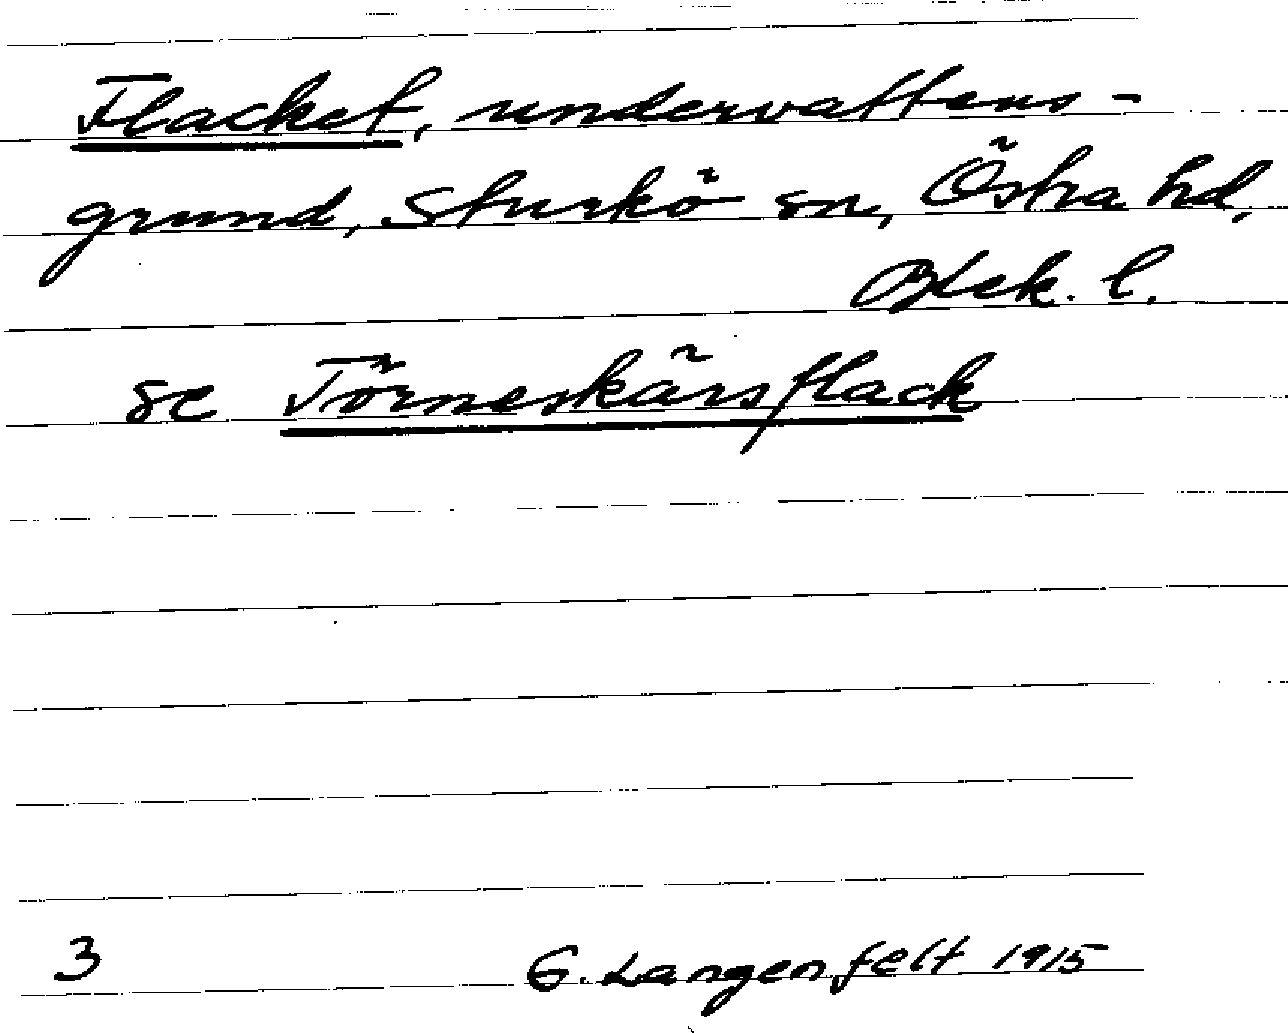 Flacket, undervattens-
grund, Sturkö sn, Östra hd,
Blek. l.
se Törneskärsflack
3
G. Langenfelt 1915